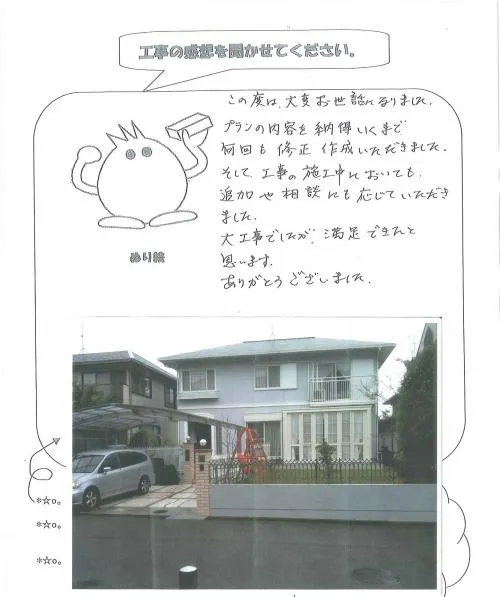 工事の感想を聞かせてください。
この度は、大変お世話になりました。
プランの内容を納得いくまで
何回も修正作成いただきました。
そして、工事の施工中においても、
追加や相談にも応じていただき
ました。
大工事でしたが、満足できたと
思います。
ありがとうございました。
ぬり絵
*☆o。
*☆o。
*☆o。